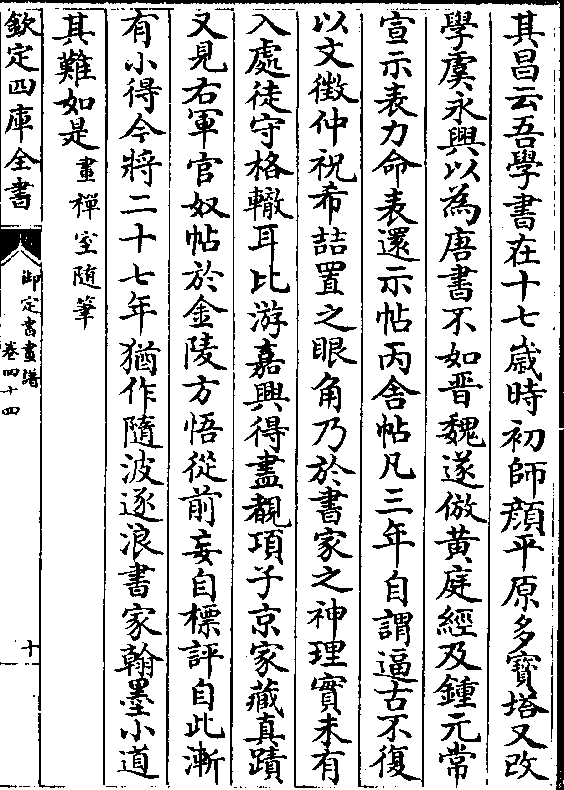 其昌云吾學書在十七歳時初師顔平原多寶塔又改
學虞永興以為唐書不如晋魏遂倣黄庭經及鍾元常
宣示表力命表還示帖丙舎帖凡三年自謂逼古不復
以文徴仲祝希喆置之眼角乃於書家之神理實未有
入處徒守格轍耳比游嘉興得盡覩項子京家藏真蹟
又見右軍官奴帖於金陵方悟從前妄自標評自此漸
有小得今將二十七年猶作隨波逐浪書家翰墨小道
其難如是畫禪室隨筆
欽定四庫全書
御定書畫譜
卷四十四
十